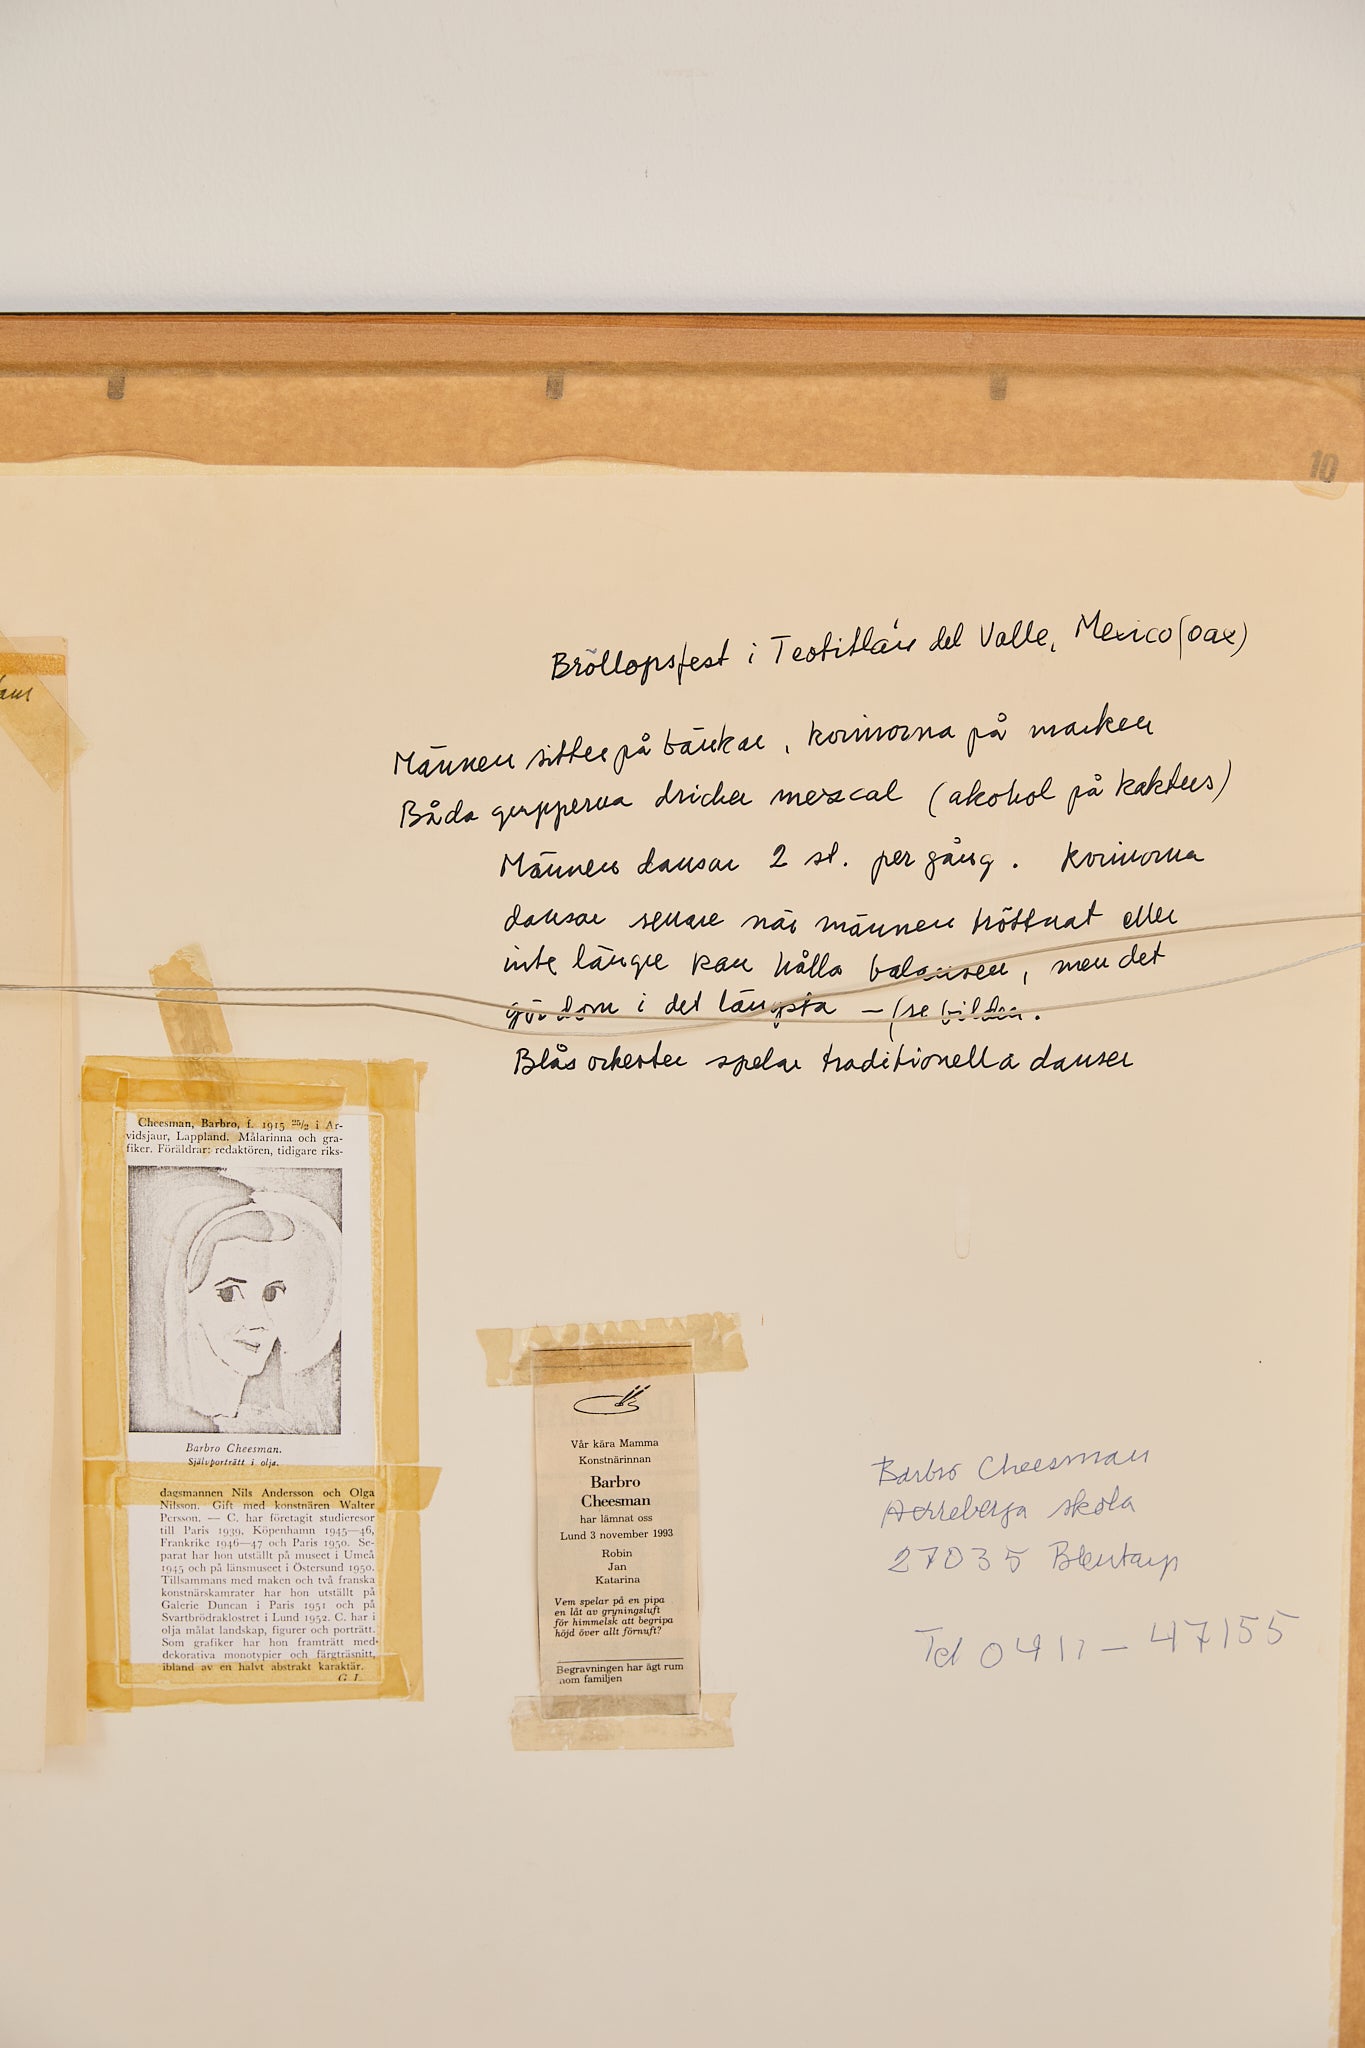 10
Bröllopsfest i Teotitlán del Valle, Mexico (oax)
Männen sitter på bänkar, kvinnorna på marken
Båda grupperna dricker mezcal (akohol på kaktus)
Männen dansar 2 st. per gång. Kvinnorna
dansar senare när männen tröttnat eller
inte längre kan hålla balansen, men det
gör dom i det längsta – (se bilden.
Blås orkester spelar traditionella danser
Cheesman, Barbro, f. 1915 25/2 i Ar-
vidsjaur, Lappland. Målarinna och gra-
fiker. Föräldrar: redaktören, tidigare riks-
Barbro Cheesman.
Självporträtt i olja.
dagsmannen Nils Andersson och Olga
Nilsson. Gift med konstnären Walter
Persson. — C. har företagit studieresor
till Paris 1939, Köpenhamn 1945—46,
Frankrike 1946—47 och Paris 1950. Se-
parat har hon utställt på museet i Umeå
1945 och på länsmuseet i Östersund 1950.
Tillsammans med maken och två franska
konstnärskamrater har hon utställt på
Galerie Duncan i Paris 1951 och på
Svartbrödraklostret i Lund 1952. C. har i
olja målat landskap, figurer och porträtt.
Som grafiker har hon framträtt med
dekorativa monotypier och färgträsnitt,
ibland av en halvt abstrakt karaktär.
Vår kära Mamma
Konstnärinnan
Barbro
Cheesman
har lämnat oss
Lund 3 november 1993
Robin
Jan
Katarina
Vem spelar på en pipa
en låt av gryningsluft
för himmelsk att begripa
höjd över allt förnuft?
Begravningen har ägt rum
inom familjen
Barbro Cheesman
Herreberga skola
27035 Blentarp
Tel 0411 – 47155